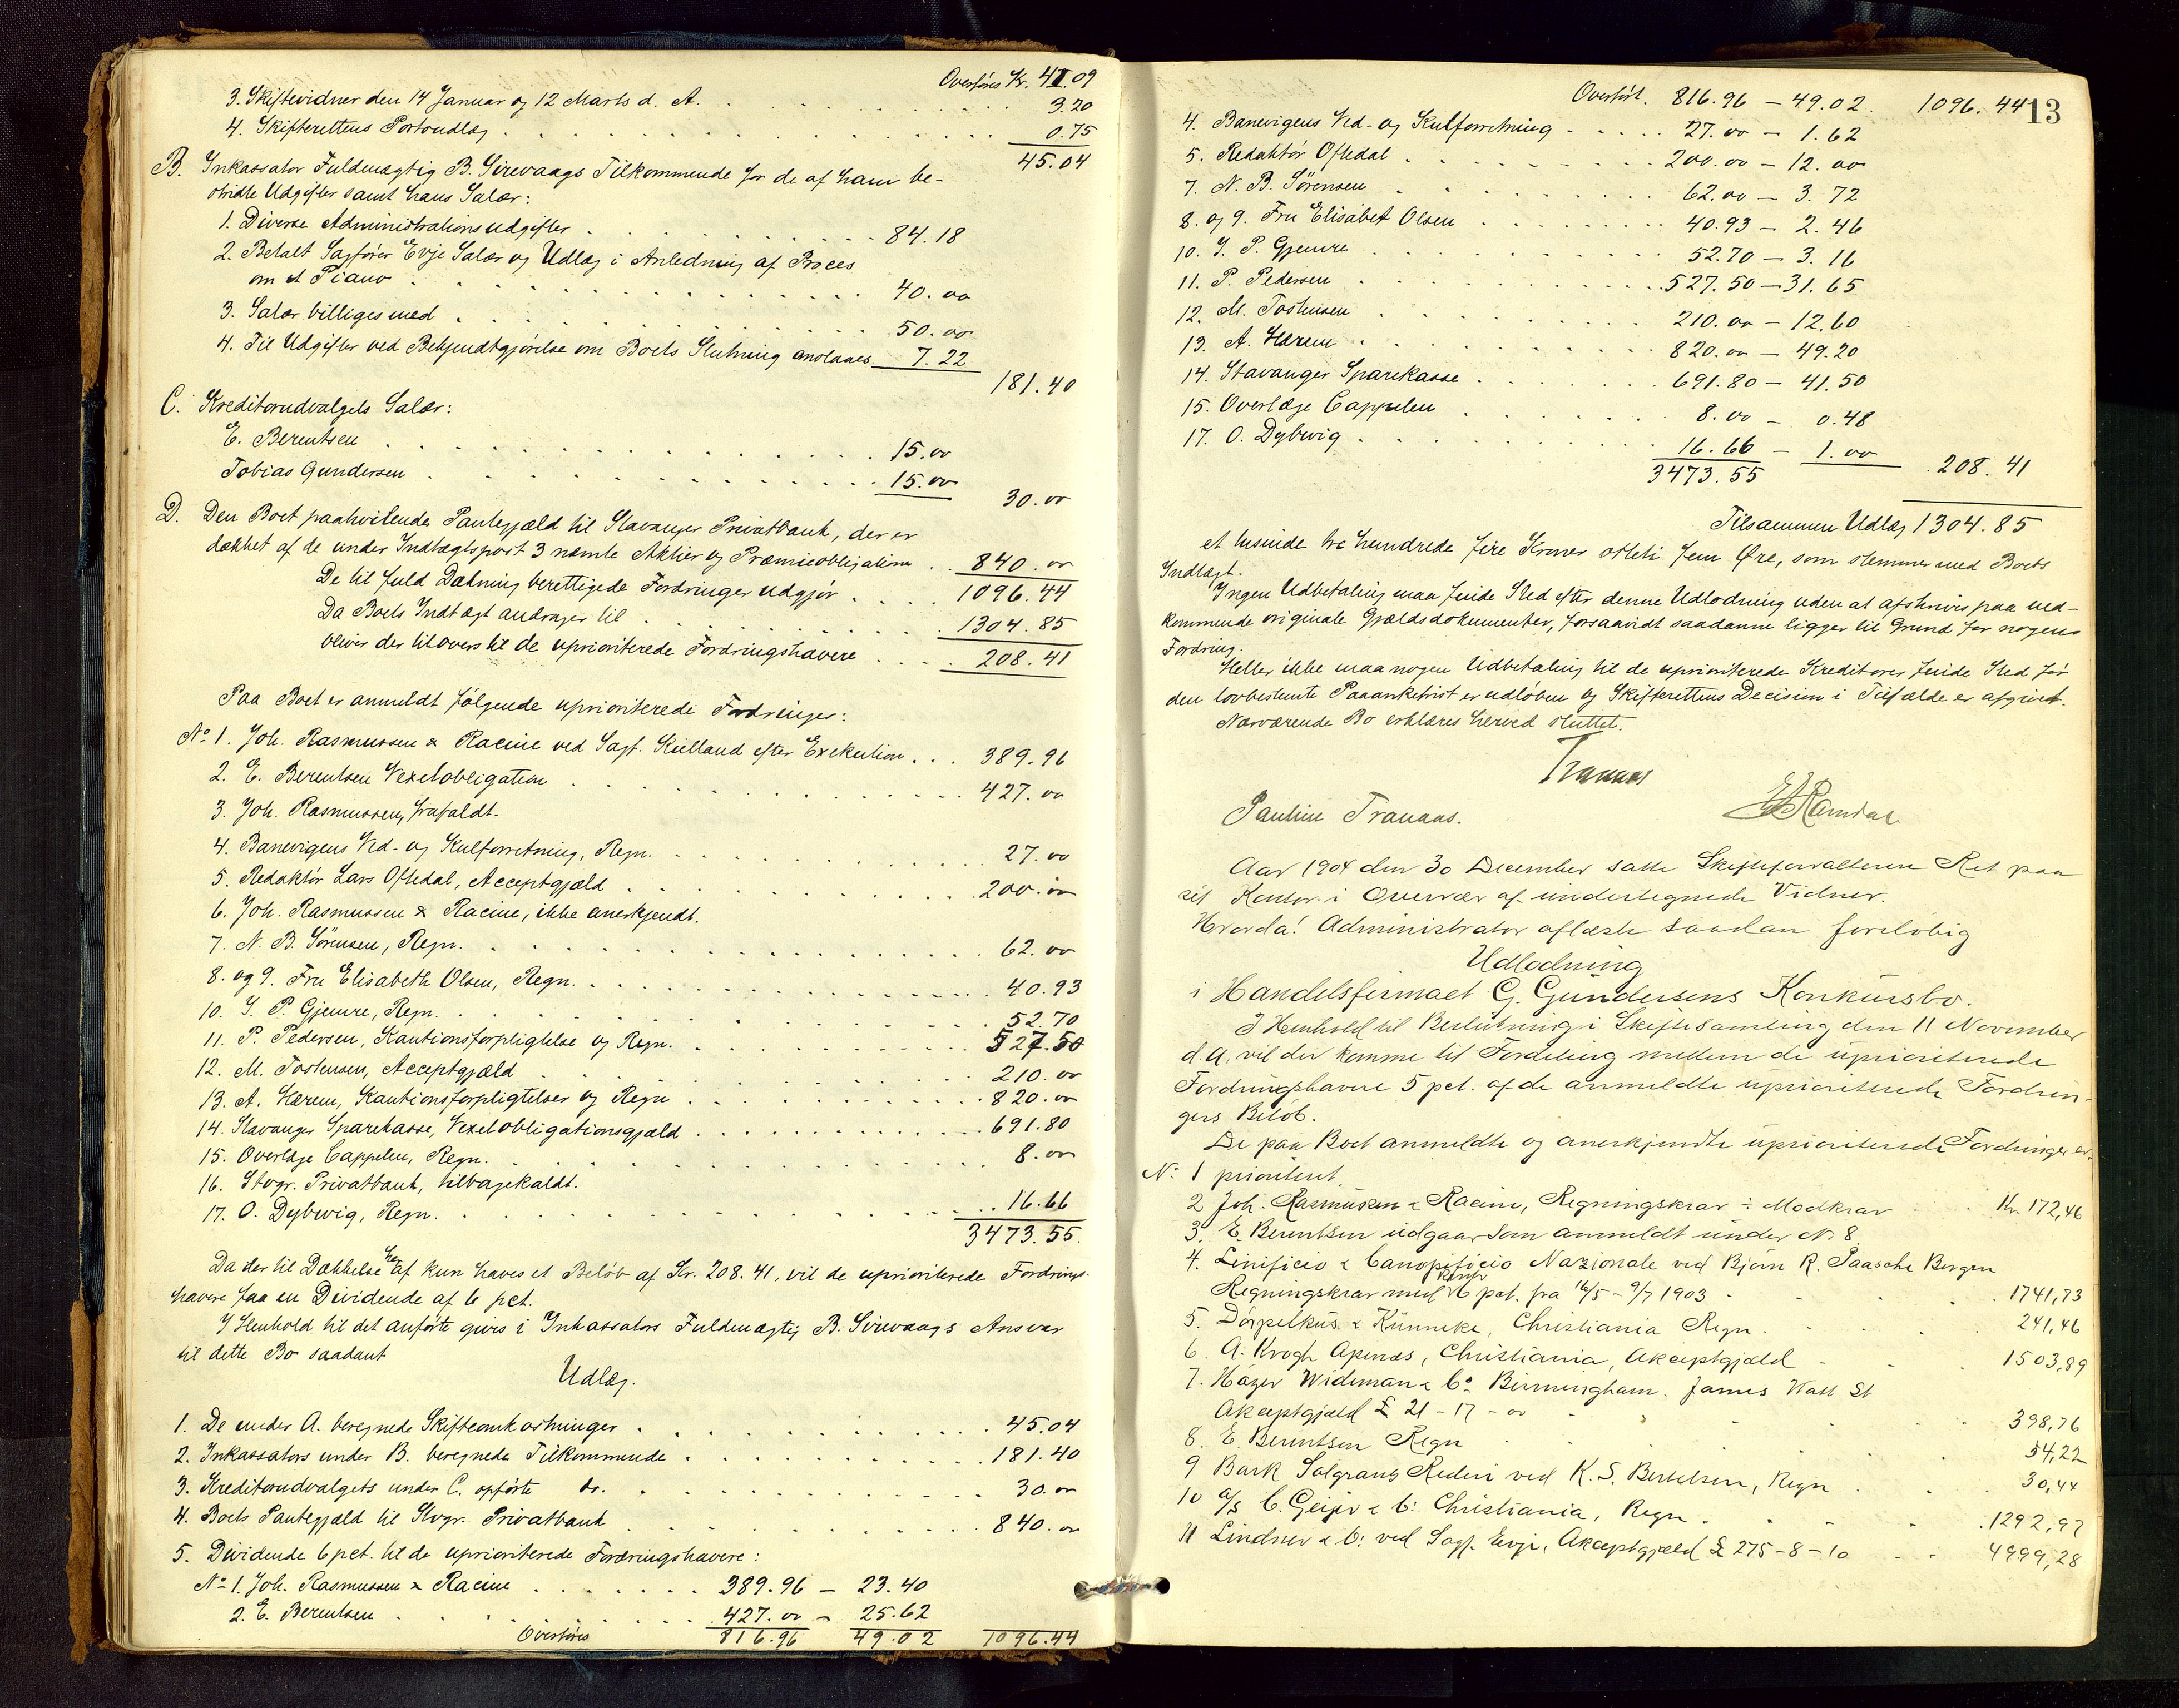 Overføres Kr. 41.09
3. Skiftevidner den 14 Januar og 12 Marts d. A. 3.20
4. Skifterettens Portoudlæg 0.75
45.04
B. Inkassator Fuldmægtig B. Sirevaags Tilkommende for de af ham be-
stridte Udgifter samt hans Salær:
1. Diverse Administrationsudgifter 84.18
2. Betalt Sagfører Evje Salær og Udlæg i Anledning af Proces
om et Piano 40.00
3. Salær billiges med 50.00
4. Til Udgifter ved Bekjendtgjørelse om Boets Slutning anslaaes 7.22
181.40
C. Kreditorudvalgets Salær:
E. Berentsen 15.00
Tobias Gundersen 15.00
30.00
D. Den Boet paahvilende Pantegjæld til Stavanger Privatbank, der er
dækket af de under Indtægtspost 3 nævnte Aktier og Præmieobligation 840.00
De til fuld Dækning berettigede Fordringer udgjør 1096.44
Da Boets Indtægt andrager til 1304.85
bliver der tilovers til de uprioriterede Fordringshavere 208.41
Paa Boet er anmeldt følgende uprioriterede Fordringer:
No 1. Joh. Rasmussen & Racine ved Sagf. Kielland efter Exekution 389.96
2. E. Berentsen Vexelobligation 427.00
3. Joh. Rasmussen, frafaldt.
4. Banevigens Ved- og Kulforretning, Regn. 27.00
5. Redaktør Lars Oftedal, Acceptgjæld 200.00
6. Joh. Rasmussen & Racine, ikke anerkjendt.
7. N. B. Sörensen, Regn. 62.00
8. og 9. Fru Elisabeth Olsen, Regn. 40.93
10. I. P. Gjemre, Regn. 52.70
11. P. Pedersen, Kautionsforpligtelse og Regn. 527.50
12. M. Tostensen, Acceptgjæld 210.00
13. A. Hærem, Kautionsforpligtelser og Regn 820.00
14. Stavanger Sparekasse, Vexelobligationsgjæld 691.80
15. Overlæge Cappelen, Regn. 8.00
16. Stvgr. Privatbank, tilbagekaldt.
17. O. Dybwig, Regn. 16.66
3473.55.
Da der til Dækkelse heraf kun haves et Beløb af Kr. 208.41, vil de uprioriterede Fordrings-
havere faa en Dividende af 6 pct.
I Henhold til det anførte givis i Inkassators Fuldmægtig B. Sirevaags Ansvar
til dette Bo saadant
Udlæg.
1. De under A. beregnede Skifteomkostninger 45.04
2. Inkassators under B. beregnede Tilkommende 181.40
3. Kreditorudvalgets under C. opførte do. 30.00
4. Boets Pantegjæld til Stvgr. Privatbank 840.00
5. Dividende 6 pct. til de uprioriterede Fordringshavere:
No 1. Joh. Rasmussen & Racine 389.96 – 23.40
2. E. Berentsen 427.00 – 25.62
Overføres 816.96 49.02 1096.44
13
Overført. 816.96 – 49.02. 1096.44
4. Banevigens Ved- og Kulforretning 27.00 – 1.62
5. Redaktør Oftedal 200.00 – 12.00
7. N. B. Sörensen 62.00 – 3.72
8. og 9. Fru Elisabet Olsen 40.93 – 2.46
10. I. P. Gjemre 52.70 – 3.16
11. P. Pedersen 527.50 – 31.65
12. M. Tostensen 210.00 – 12.60
13. A. Hærem 820.00 – 49.20
14. Stavanger Sparekasse 691.80 – 41.50
15. Overlæge Cappelen 8.00 – 0.48
17. O. Dybwig 16.66 – 1.00
3473.55 208.41
Tilsammen Udlæg 1304.85
et tusinde tre hundrede fire Kroner otteti fem Øre, som stemmer med Boets
Indtægt.
Ingen Udbetaling maa finde Sted efter denne Udlodning uden at afskrives paa ved-
kommende originale Gjældsdokumenter, forsaavidt saadanne ligger til Grund for nogen
Fordring.
Heller ikke maa nogen Udbetaling til de uprioriterede Kreditorer finde Sted før
den lovbestemte Paaankefrist er udløben og Skifterettens Decision i Tilfælde er afgivet.
Nærværende Bo erklæres herved sluttet.
Tranaas
Pauline Tranaas.
Aar 1904 den 30 December satte Skifteforvalteren Ret paa
sit Kontor i Overvær af undertegnede Vidner.
Hvorda! Administrator aflæste saadan foreløbig
Udlodning
i Handelsfirmaet G. Gundersens Konkursbo.
I Henhold til Beslutning i Skiftesamling den 11 November
d.A. vil der komme til Fordeling mellem de uprioriterede
Fordringshavere 5 pct. af de anmeldte uprioriterede Fordrin-
gers Beløb.
De paa Boet anmeldte og anerkjendte uprioriterede Fordringer er:
No 1 prioritert.
2 Joh. Rasmussen & Racine, Regningskrav ÷ Modkrav Kr. 172,46
3. E. Berentsen udgaar som anmeldt under No 8
4. Linificio & Canopificio Nazionale ved Bjørn R. Paasche Bergen
Regningskrav med Renter 6 pct. fra 16/5 – 9/7 1903 1741,73
5. Dörpelkus & Künneke, Christiania Regn. 241,46
6. A. Krogh Apenæs, Christiania, Akceptgjæld 1503,89
7. Hazer Wideman & Co. Birmingham. James Watt St
Akceptgjæld £ 21-17-00 398,76
8. E. Berentsen Regn 54,22
9 Bark Solgrans Rederi ved K. S. Bertelsen, Regn 30,44
10 A/S C. Geijer & Co: Christiania, Regn 1292,97
11 Lindner & Co: ved Sagf. Evje, Akceptgjæld £ 275-8-10 4999,28